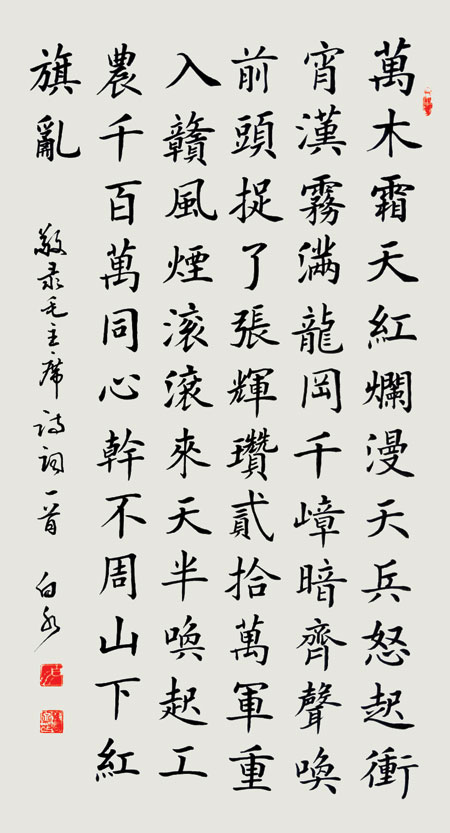 萬木霜天紅爛漫天兵怒起衝
宵漢霧滿龍岡千嶂暗齊聲喚
前頭捉了張輝瓚貳拾萬軍重
入贛風煙滚滚來天半喚起工
農千百萬同心幹不周山下紅
旗亂
敬录毛主席诗词一首 白